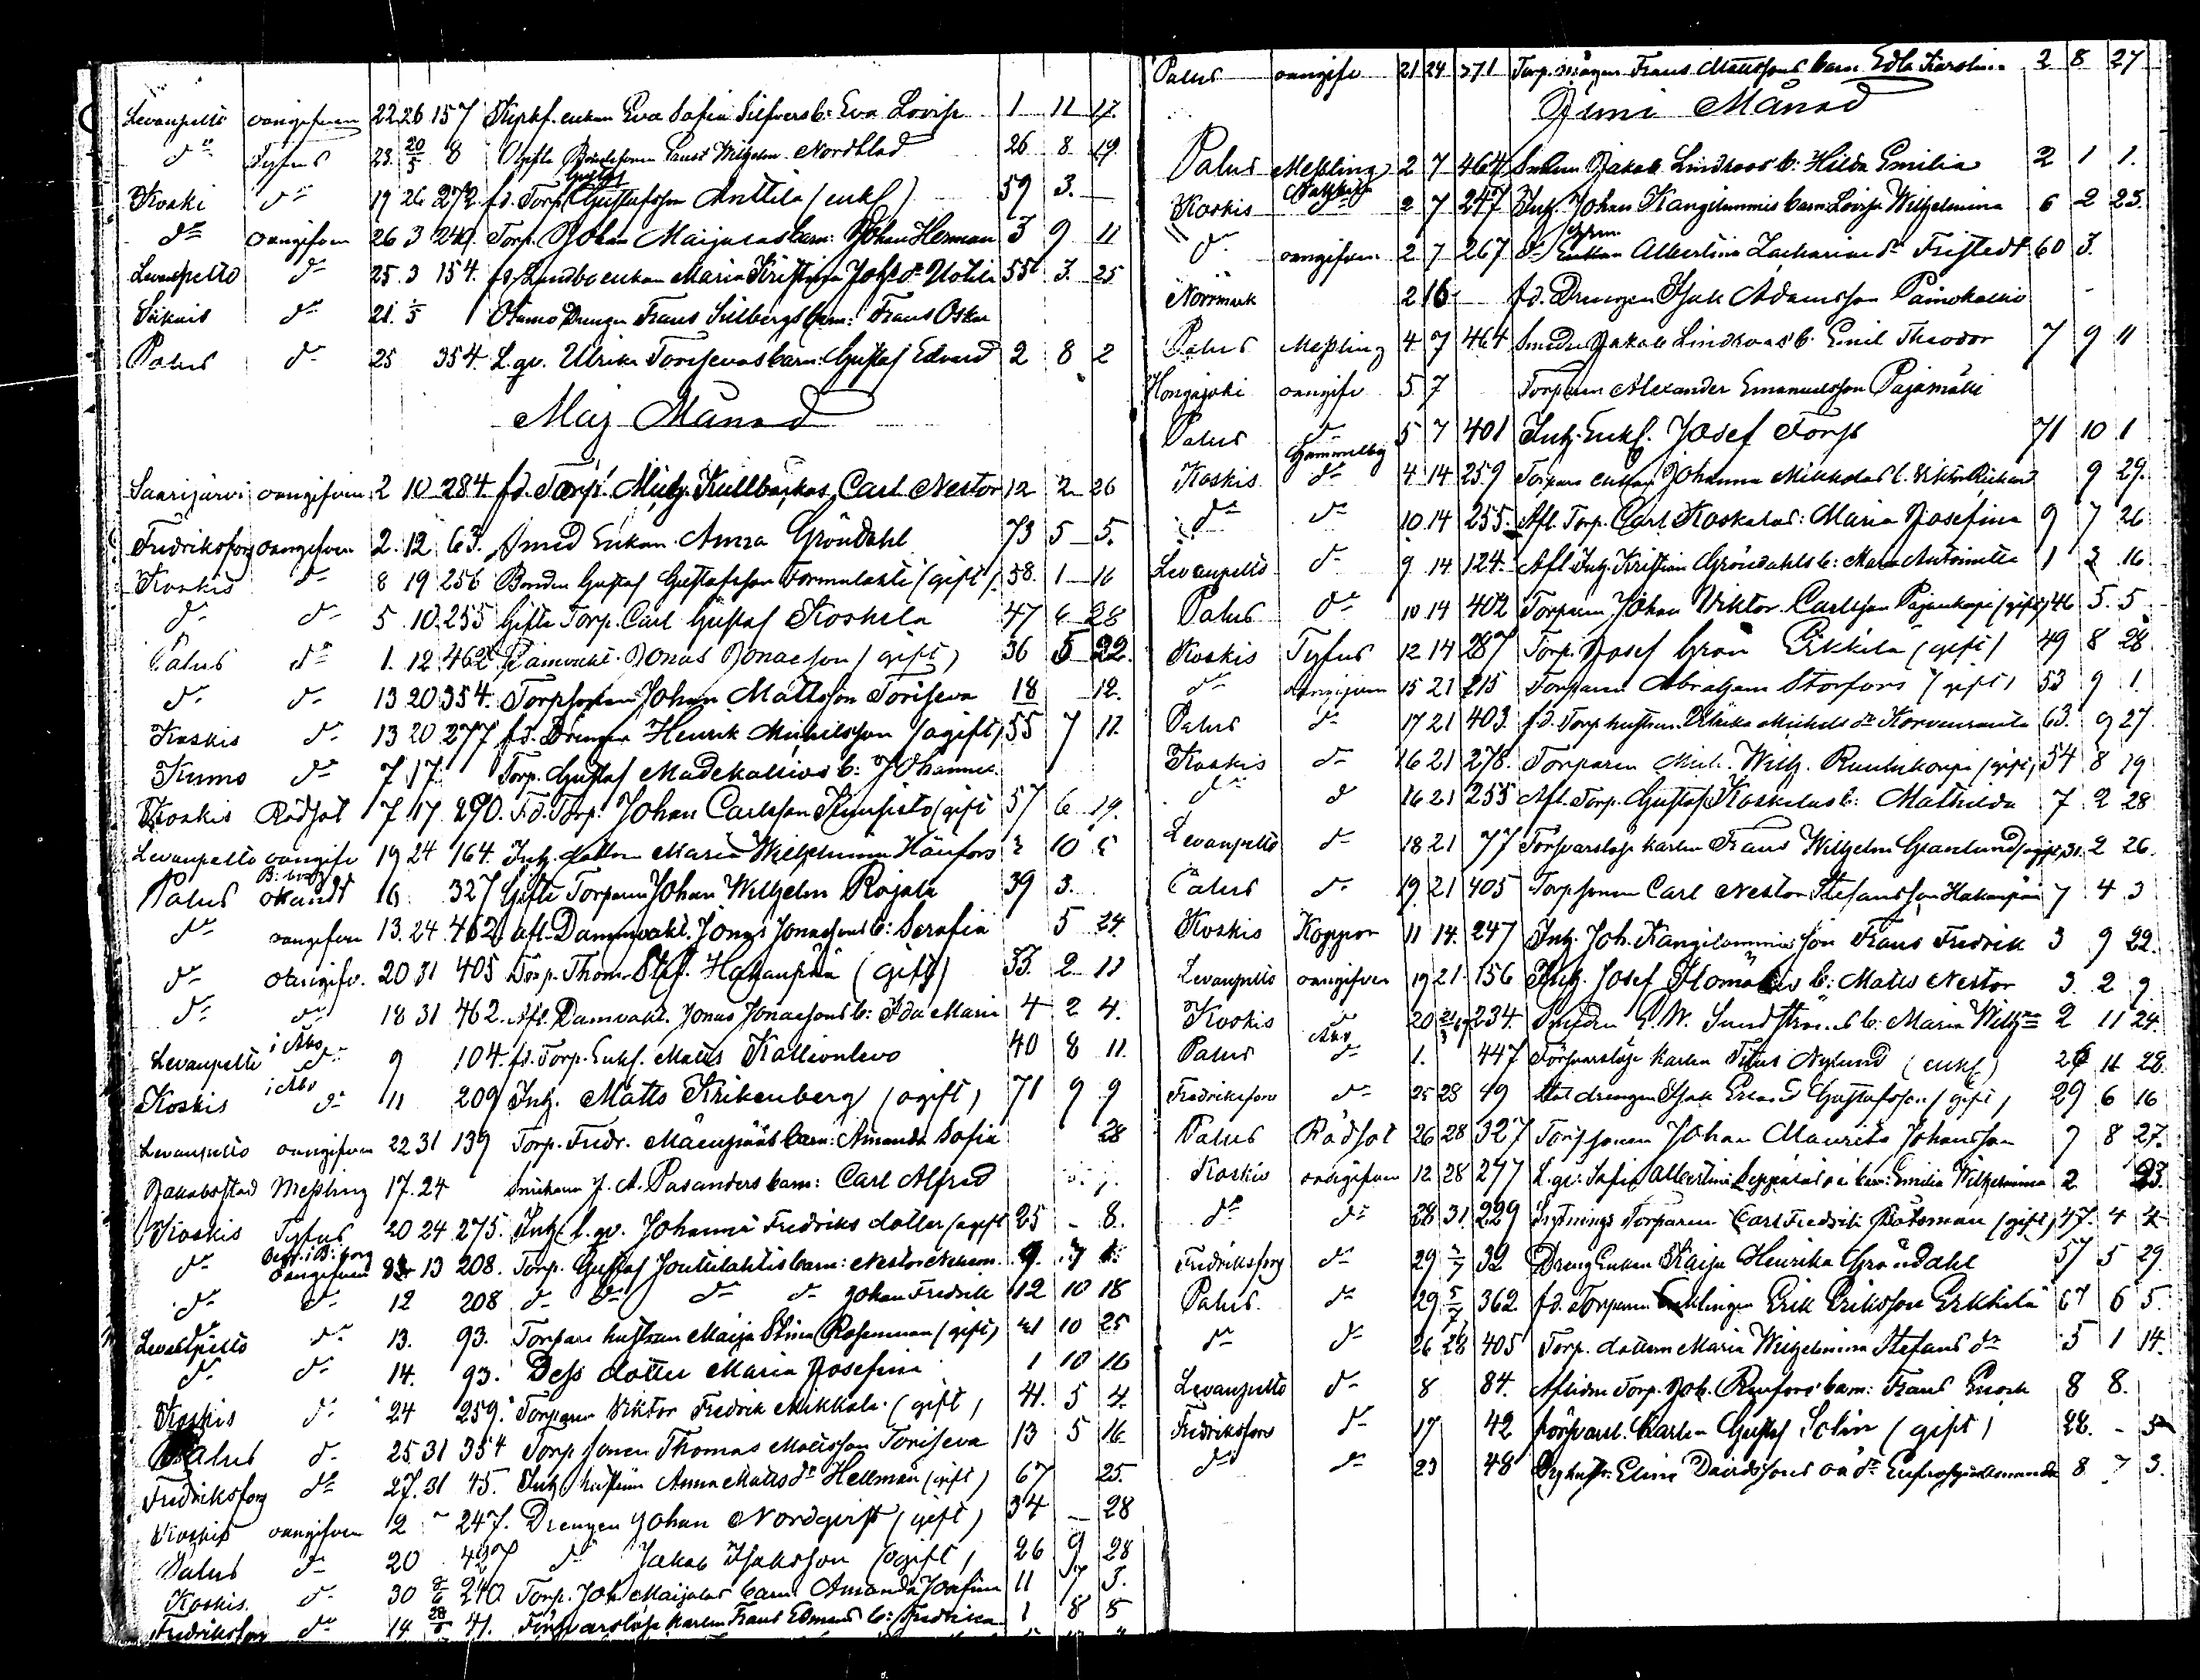 Levanpelto oangifven 22 26 157 Enkan Eva Sofia Silfvers b: Eva Lovisa 1 11 17.
do Tyfus 23. 20/5 8 Gifta Wilhelm Nordblad 26 8 19.
Koski do 19 26 272. fd. Torp. Gustaf Gustafsson Anttila (enkl) 59 3. —
do oangifven 26 3 240. Torp. Johan Maijalas barn: Johan Herman 3 9 11
Levanpelto do 25. 3 154. fd. Landbo enkan Maria Kristina Johs dr Uotila 55 3. 25
do 21. Drengen Frans Silbergs barn: Frans Oskar
Palus do 25 354. L. qv. Ulrika Torisevas barn: Gustaf Edvard 2 8 2
Maj Månad
Saarijärvi oangifven 2 10 284. fd. Torp. Kullbackas Carl Nestor 12 2 26
Fredriksfors oangifven 2. 12 63. Smed Enkan Anna Gröndahl 73 5 5.
Koskis do 8 19 256 Bonden Gustaf Gustafsson Tommilahti (gift) 58. 1 16
do do 5 10. 255 Gifta Torp. Carl Gustaf Koskela 47 6 28
Palus do 1. 12 462 Damvakt. Jonas Jonasson (gift) 36 5 22.
do do 13 20 354. Torpsonen Johan Mattsson Toriseva 18 — 12.
Koskis do 13 20 277 fd. Drengen Henrik Michelsson (ogift) 55 7 11.
Kumo do 7 17. Torp. Gustaf Madekallios b: Johannes.
Koskis Rödsot 7 17 290. F.d. Torp. Johan Carlsson Kuusisto (gift 57 6 19.
Levanpelto oangifv 19 24 164. Inh. dottern Maria Wilhelmina Hänfors 10
Palus okändt 16 327 Gifte Torparen Johan Wilhelm Rajala 39 3.
do oangifven 13. 24. 462 Afl. Damvakt. Jonas Jonassons b: Serafia 5 24.
do oangifv. 20 31 405 Torp. Thom. Stef. Hakanpää (gift) 33. 2 11
do do 18 31 462. Afl. Damvakt. Jonas Jonassons b: Ida Maria 4 2 4.
Levanpelto i Åbo do 9 104. fd. Torp. Enkl. Matts Kallionlevo 40 8 11.
Koskis i Åbo do 11 209 Inh. Matts Krikenberg (ogift) 71 9 9
Levanpelto oangifven 22 31 139 Torp. Fredr. Mäenpääs barn: Amanda Sofia 28
Jakobsstad Messling 17. 24 J. A. Pasanders barn: Carl Alfred
Koskis Tyfus 20 24 275. Inh. l. qv. Johanna Fredriks dotter (ogift 25 - 8.
do oangifven 13 208. Torp. Gustaf Joutsilahtis barn: Nestor 9. 7
do do 12 208 do do do do Johan Fredrik 12 10 18
Levanpelto do 13. 93. Torpare hustrun Maija Stina Rosenman (gift) 10 25
do do 14. 93. Dess dotter Maria Josefina 1 10 16
Koskis do 24 259. Torparen Viktor Fredrik Mikkola (gift) 41. 5 4.
Palus do 25. 31 354 Torp. sonen Thomas Mattsson Toriseva 13 5 16
Fredriksfors do 27. 31 45. Inh. hustrun Anna Matts dr Hellman (gift) 67 25.
Koskis oangifven 2 247. Drengen Johan Nordqvist (gift) 34 — 28
Palus do 20 427 do Jakob Isaksson (ogift) 26 9 28
Koskis. do 30 8/6 240. Torp. Joh. Maijalas barn Amanda Josefina 11 7 3.
Fredriksfors do 14 41. Försvarslöse karlen Frans Edmans b: Fredrika 1 8 5
Palus oangifv 21 24 371 Torp. mågen Frans Mattssons barn Edla Karolina 2 8 27
Juni Månad
Palus Messling 2 7 464 Smeden Jakob Lindroos b: Hilda Emilia 2 1 1.
Koskis 2 7 247 Inh. Johan Kangilammis barn Lovisa Wilhelmina 6 2 23.
do oangifven 2 7 267 do Enkan Albertina Zacharias dr Fristedt 60 3.
Norrmark 2 16 fd. Drengen Isak Adamsson Painokallio
Palus Messling 4 7 464 Smeden Jakob Lindroos b. Emil Theodor 7 9 11
Hongajoki oangifv 5 7 Torparen Alexander Emanuelsson Pajamäki
Palus do 5 7 401 Inh. Enkl. Josef Fors 71 10 1
Koskis do 4 14 259 Torpare enkan Johanna Mikkolas b. Viktor Rickard 9 29.
do do 10. 14 255. Afl. Torp. Carl Koskelas: Maria Josefina 9 7 26
Levanpelto do 9 14 124. Afl. Inh. Kristian Gröndahls b: Maria Antoinetta 1 3 16.
Palus do 10 14 402 Torparen Johan Viktor Carlsson Pajunkorpi (gift) 46 5. 5
Koskis Tyfus 12 14 287 Torp. Josef Grön Erkkilä (gift) 49 8 28
do oangifven 15 21 215 Torparen Abraham Storfors (gift) 53 9 1.
Palus do 17 21 403. fd. Torp hustrun Ulrika Michels dr Korvenranta 63. 9 27.
Koskis do 16 21 278. Torparen Mich. Wilh. Ruuhikorpi (gift) 54 8 19
do do 16 21 255 Afl. Torp. Gustaf Koskelas b: Mathilda 7 2 28
Levanpelto do 18 21 77 Försvarslöse karlen Frans Wilhelm Granlund ogift 31. 2 26.
Palus do 19. 21 405 Torpsonen Carl Nestor Stefansson Hakanpää 7 4 3
Koskis Koppor 11 14. 247 Inh. Joh. Kangilammis son Frans Fredrik 3 9 22.
Levanpelto oangifven 19 21 156 Inh. Josef Ilomäkis b: Matts Nestor 3. 2 9.
Koskis do 20 234. Smeden G. W. Sundströms b: Maria Wilh:na 2 11 24.
Palus Åbo do 1. 447 Försvarslöse karlen Titus Nylund (enkl) 26 11 28.
Fredriksfors do 25 28 49 Stat drengen Isak Erland Gustafsson (gift) 29 6 16
Palus Rödsot 26 28 327 Torpsonen Johan Maurits Johansson 7 8 27.
Koskis oangifven 12 28 277 L. qv: Sofia Albertina Seppäläs oä barn: Emilia Wilhelmina 2 23.
do do 28 31. 229 Sytnings Torparen Carl Fredrik Båtsman (gift) 47. 4 4
Fredriksfors do 29 32 Dreng Enkan Kaisa Henrika Gröndahl 57 5 29.
Palus do 29 5/7 362 fd. Torparen Enklingen Erik Eriksson Erkkilä 67 6 5.
do do 26 28 405 Torp. dottern Maria Wilhelmina Stefans dr 5 1 14.
Levanpelto do 8 84. Afliden Torp. Joh. Renfors barn: Frans Enock 8 8.
Fredriksfors do 17 42 Försvarsl. Karlen Gustaf Solin (gift) 28. - 5
do do 23 48 Elina Davidssons oä dr Eufrosyna Amanda 8 7 3.